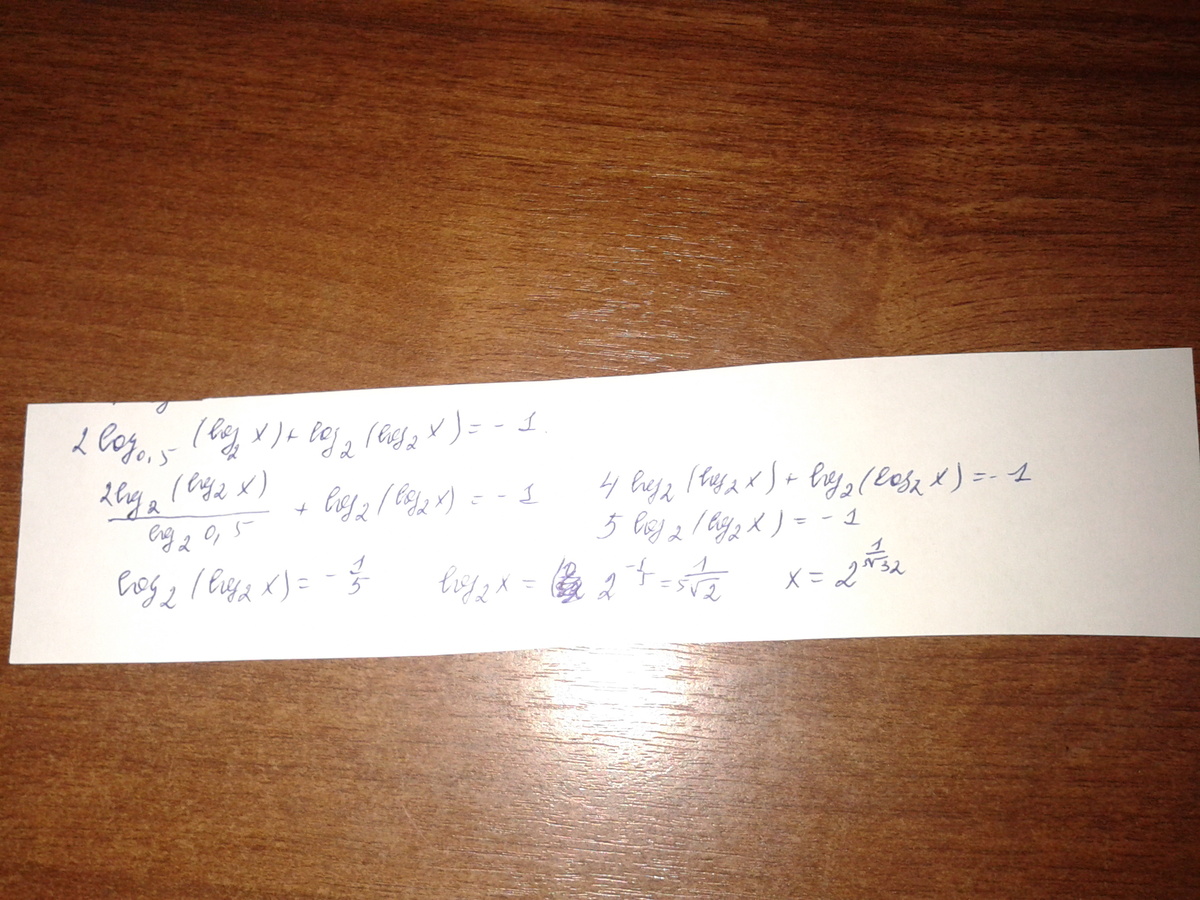 2 log_{0,5} (log_2 x) + log_2 (log_2 x) = - 1.
\frac{2 log_2 (log_2 x)}{log_2 0,5} + log_2 (log_2 x) = - 1
4 log_2 (log_2 x) + log_2 (log_2 x) = - 1
5 log_2 (log_2 x) = - 1
log_2 (log_2 x) = - \frac{1}{5}
log_2 x = 2^{-\frac{1}{5}} = \frac{1}{\sqrt[5]{2}}
x = 2^{\frac{1}{\sqrt[5]{32}}}